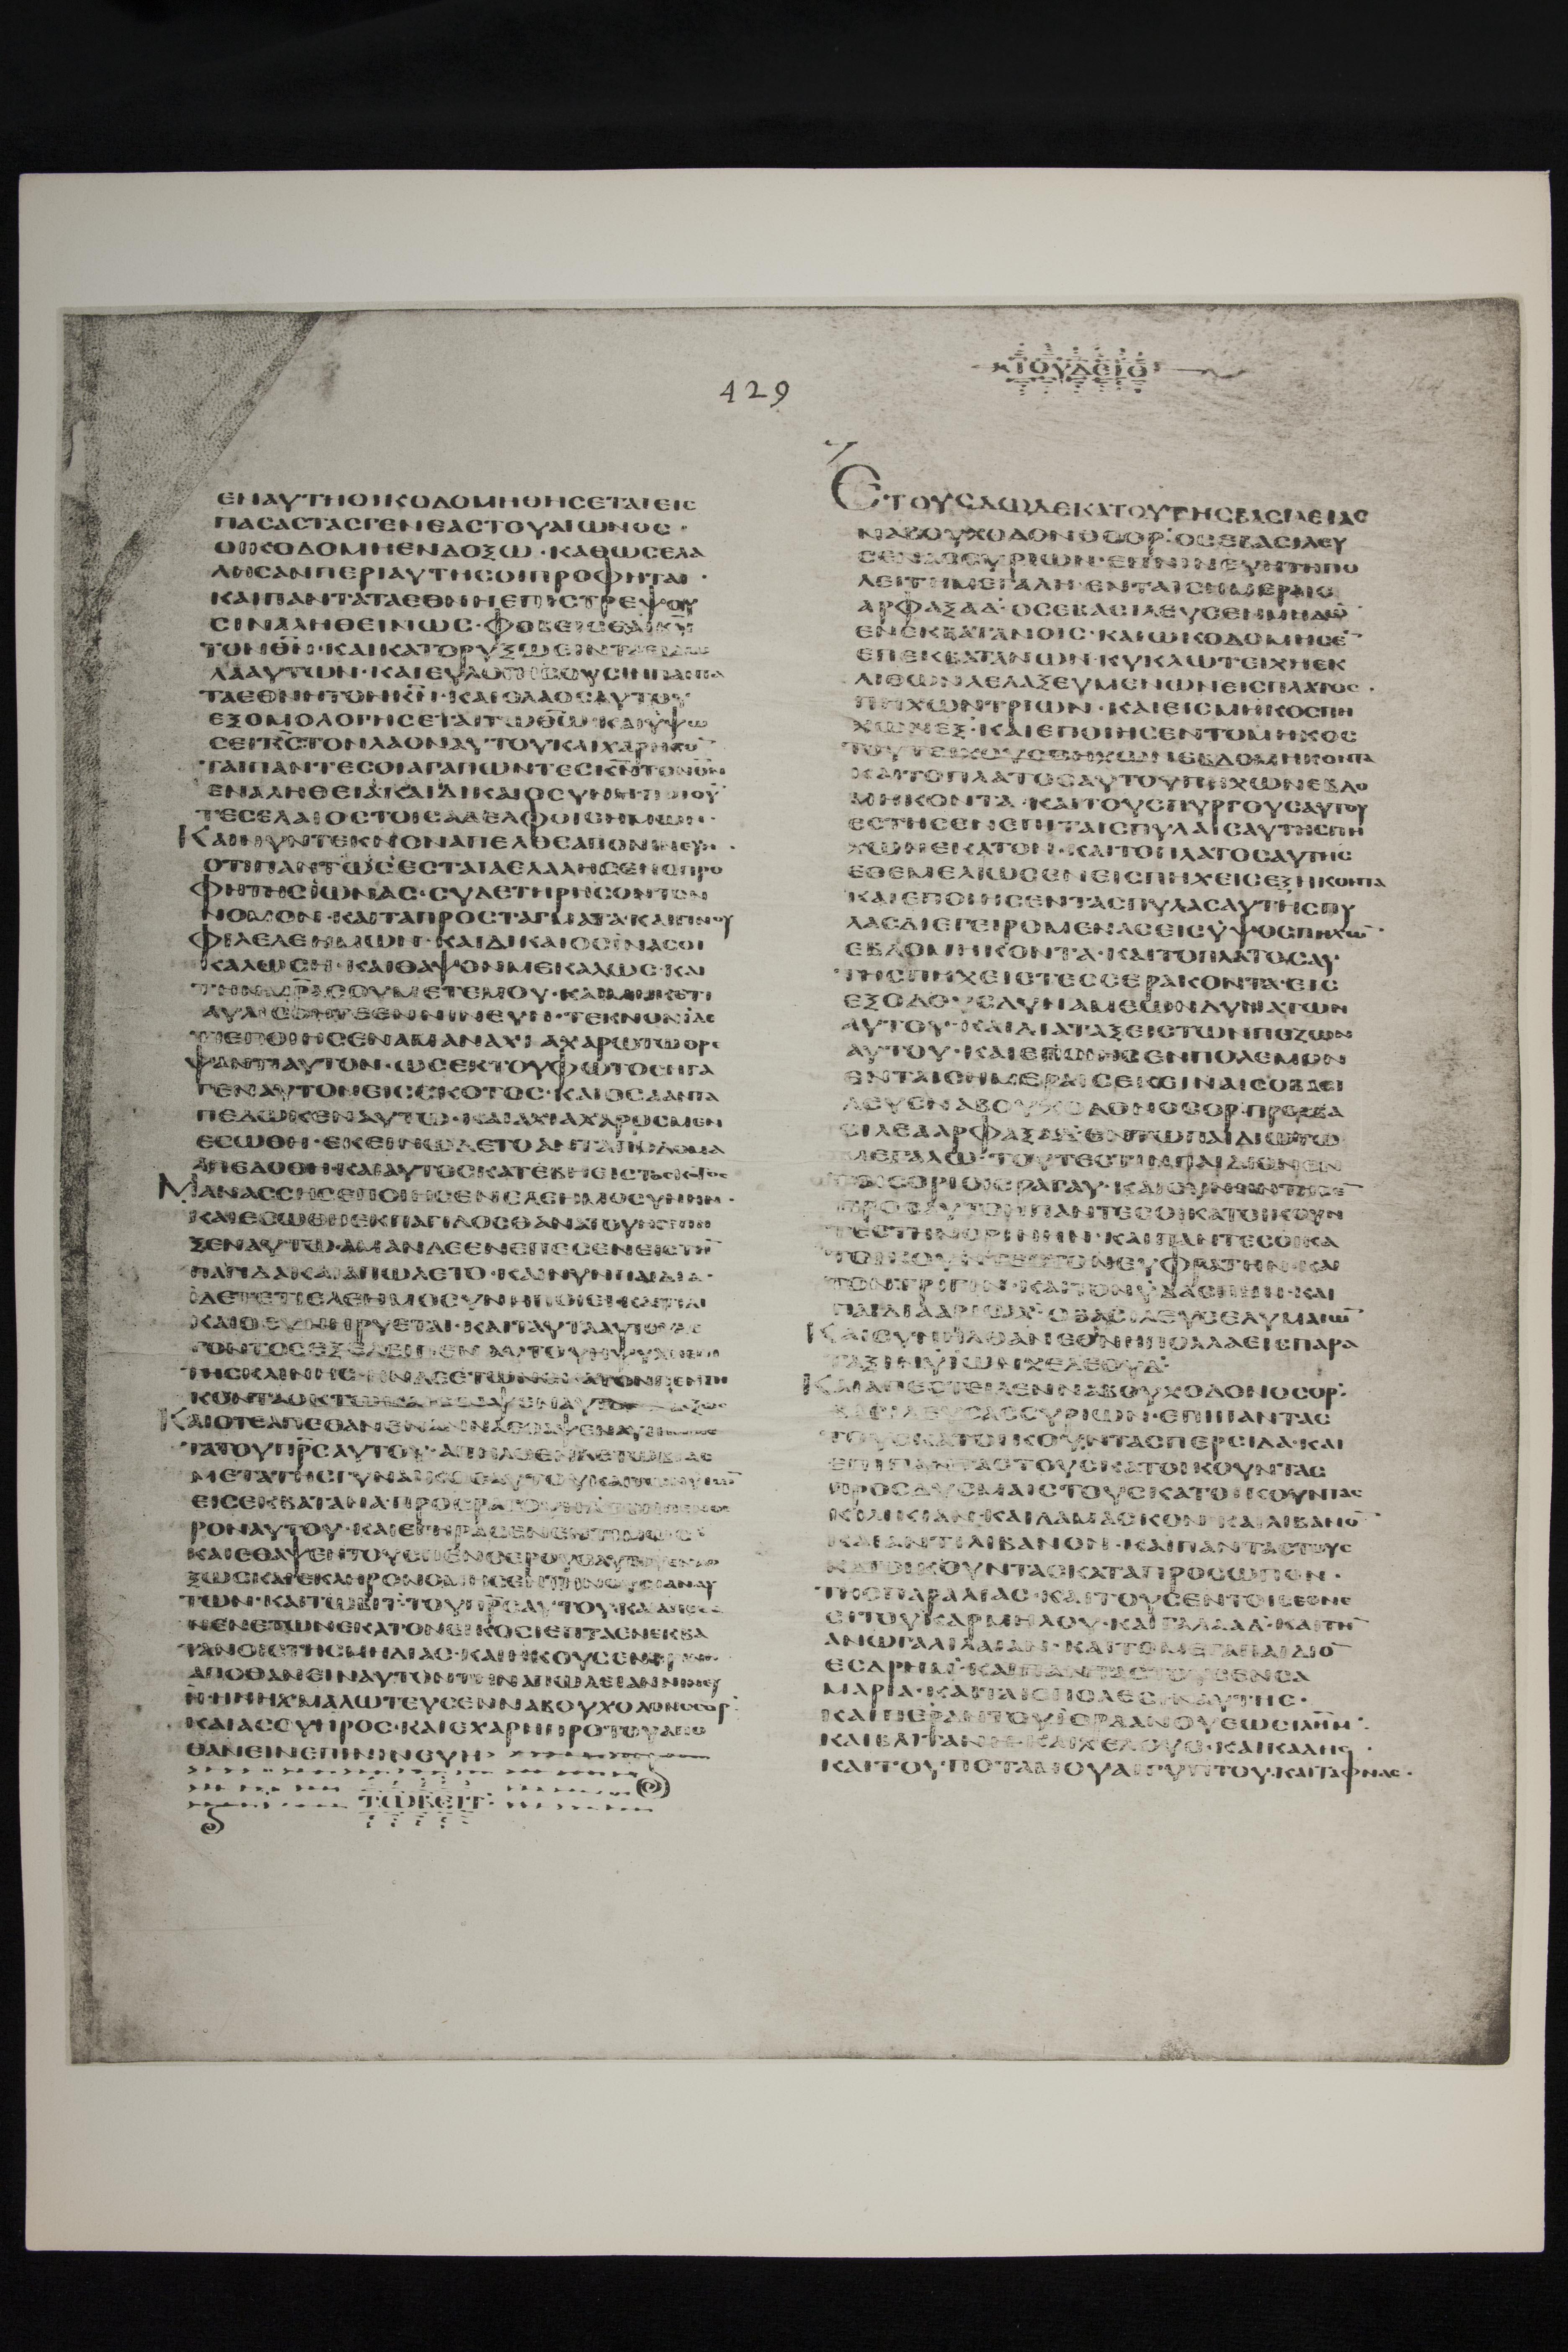 429
ΙΟΥΔΕΙΘ
ΕΝΑΥΤΗΟΙΚΟΔΟΜΗΘΗСΕΤΑΙΕΙС
ΠΑСΑСΤΑСΓΕΝΕΑСΤΟΥΑΙΩΝΟС·
ΟΙΚΟΔΟΜΗΕΝΔΟΞΩ·ΚΑΘΩСΕΛΑ
ΛΗСΑΝΠΕΡΙΑΥΤΗСΟΙΠΡΟΦΗΤΑΙ·
ΚΑΙΠΑΝΤΑΤΑΕΘΝΗΕΠΙСΤΡΕΨΟΥ
СΙΝΑΛΗΘΕΙΝΩС·ΦΟΒΕΙСΘΑΙΚΝ
ΤΟΝΘΝ·ΚΑΙΚΑΤΟΡΥΞΩСΙΝΤΑΕΙΔΩ
ΛΑΑΥΤΩΝ·ΚΑΙΕΥΛΟΓΗСΟΥСΙΝΠΑΝΤΑ
ΤΑΕΘΝΗΤΟΝΚΝ·ΚΑΙΟΛΑΟСΑΥΤΟΥ
ΕΞΟΜΟΛΟΓΗСΕΤΑΙΤΩΘΩ·ΚΑΙΥΨΩ
СΕΙΚСΤΟΝΛΑΟΝΑΥΤΟΥΚΑΙΧΑΡΗСΟ
ΤΑΙΠΑΝΤΕСΟΙΑΓΑΠΩΝΤΕСΚΝΤΟΝΘΝ
ΕΝΑΛΗΘΕΙΑΚΑΙΔΙΚΑΙΟСΥΝΗ·ΠΟΙΟΥ
ΤΕСΕΛΑΙΟСΤΟΙСΑΔΕΛΦΟΙСΗΜΩΝ·
ΚΑΙΝΥΝΤΕΚΝΟΝΑΠΕΛΘΕΑΠΟΝΙΝΕΥΗ·
ΟΤΙΠΑΝΤΩСΕСΤΑΙΑΕΛΑΛΗСΕΝΟΠΡΟ
ΦΗΤΗСΙΩΝΑС·СΥΔΕΤΗΡΗСΟΝΤΟΝ
ΝΟΜΟΝ·ΚΑΙΤΑΠΡΟСΤΑΓΜΑΤΑ·ΚΑΙΓΙΝΟΥ
ΦΙΛΕΛΕΗΜΩΝ·ΚΑΙΔΙΚΑΙΟСΙΝΑСΟΙ
ΚΑΛΩСΗ·ΚΑΙΘΑΨΟΝΜΕΚΑΛΩС·ΚΑΙ
ΤΗΝΜΡΑСΟΥΜΕΤΕΜΟΥ·ΚΑΙΜΗΚΕΤΙ
ΑΥΛΙСΘΗΤΕΕΝΝΙΝΕΥΗ·ΤΕΚΝΟΝΙΔΕ
ΤΙΕΠΟΙΗСΕΝΑΜΑΝΑΧΙΑΧΑΡΩΤΩΘΡΕ
ΨΑΝΤΙΑΥΤΟΝ·ΩСΕΚΤΟΥΦΩΤΟСΗΓΑ
ΓΕΝΑΥΤΟΝΕΙССΚΟΤΟС·ΚΑΙΟСΑΑΝΤΑ
ΠΕΔΩΚΕΝΑΥΤΩ·ΚΑΙΑΧΙΑΧΑΡΟСΜΕΝ
ΕСΩΘΗ·ΕΚΕΙΝΩΔΕΤΟΑΝΤΑΠΟΔΟΜΑ
ΑΠΕΔΟΘΗ·ΚΑΙΑΥΤΟСΚΑΤΕΒΗΕΙСΤΟСΚΟΤΟС
ΜΑΝΑССΗСΕΠΟΙΗСΕΝΕΛΕΗΜΟСΥΝΗΝ·
ΚΑΙΕСΩΘΗΕΚΠΑΓΙΔΟСΘΑΝΑΤΟΥΗСΕΠΗ
ΞΕΝΑΥΤΩ·ΑΜΑΝΔΕΕΝΕΠΕСΕΝΕΙСΤΗ
ΠΑΓΙΔΑΚΑΙΑΠΩΛΕΤΟ·ΚΑΙΝΥΝΠΑΙΔΙΑ·
ΙΔΕΤΕΤΙΕΛΕΗΜΟСΥΝΗΠΟΙΕΙ·ΚΑΙΤΙΔΙ
ΚΑΙΟСΥΝΗΡΥΕΤΑΙ·ΚΑΙΤΑΥΤΑΑΥΤΟΥΛΕ
ΓΟΝΤΟСΕΞΕΛΕΙΠΕΝΑΥΤΟΥΗΨΥΧΗΕΠΙ
ΤΗСΚΛΙΝΗС·ΗΝΔΕΕΤΩΝΕΚΑΤΟΝΠΕΝΤΗ
ΚΟΝΤΑΟΚΤΩΚΑΙΕΘΑΨΕΝΑΥΤΟΝ
ΚΑΙΟΤΕΑΠΕΘΑΝΕΝΑΝΝΑΕΘΑΨΕΝΑΥΤΗΝ
ΤΑΤΟΥΠΡСΑΥΤΟΥ·ΑΠΗΛΘΕΝΔΕΤΩΒΙΑС
ΜΕΤΑΤΗСΓΥΝΑΙΚΟСΑΥΤΟΥΚΑΙΤΩΝΥΙΩ
ΕΙСΕΚΒΑΤΑΝΑ·ΠΡΟСΡΑΓΟΥΗΛΤΟΝΠΕΝΘΕ
ΡΟΝΑΥΤΟΥ·ΚΑΙΕΓΗΡΑСΕΝΕΝΤΙΜΩС·
ΚΑΙΕΘΑΨΕΝΤΟΥСΠΕΝΘΕΡΟΥСΑΥΤΟΥΕΝΔΟ
ΞΩСΚΑΙΕΚΛΗΡΟΝΟΜΗСΕΝΤΗΝΟΥСΙΑΝΑΥ
ΤΩΝ·ΚΑΙΤΩΒΙΤ·ΤΟΥΠΡСΑΥΤΟΥ·ΚΑΙΑΠΕΘΑ
ΝΕΝΕΤΩΝΕΚΑΤΟΝΕΙΚΟСΙΕΠΤΑСΝΕΚΒΑ
ΤΑΝΟΙСΤΗСΜΗΔΙΑС·ΚΑΙΗΚΟΥСΕΝΠΡΙΝ
ΑΠΟΘΑΝΕΙΝΑΥΤΟΝΤΗΝΑΠΩΛΕΙΑΝΝΙΝΕΥ
Η·ΗΝΗΧΜΑΛΩΤΕΥСΕΝΝΑΒΟΥΧΟΔΟΝΟСΟΡ·
ΚΑΙΑСΟΥΗΡΟС·ΚΑΙΕΧΑΡΗΠΡΟΤΟΥΑΠΟ
ΘΑΝΕΙΝΕΠΙΝΙΝΕΥΗ·
ΤΩΒΕΙΤ·
ΕΤΟΥСΔΩΔΕΚΑΤΟΥΤΗСΒΑСΙΛΕΙΑС
ΝΑΒΟΥΧΟΔΟΝΟСΟΡ·ΟСΕΒΑСΙΛΕΥ
СΕΝΑССΥΡΙΩΝ·ΕΝΝΙΝΕΥΗΤΗΠΟ
ΛΕΙΤΗΜΕΓΑΛΗ·ΕΝΤΑΙСΗΜΕΡΑΙС
ΑΡΦΑΞΑΔ·ΟСΕΒΑСΙΛΕΥСΕΝΜΗΔΩ
ΕΝΕΚΒΑΤΑΝΟΙС·ΚΑΙΩΚΟΔΟΜΗСΕ
ΕΠΕΚΒΑΤΑΝΩΝ·ΚΥΚΛΩΤΕΙΧΗΕΚ
ΛΙΘΩΝΛΕΛΑΞΕΥΜΕΝΩΝΕΙСΠΛΑΤΟС·
ΠΗΧΩΝΤΡΙΩΝ·ΚΑΙΕΙСΜΗΚΟСΠΗ
ΧΩΝΕΞ·ΚΑΙΕΠΟΙΗСΕΝΤΟΜΗΚΟС
ΤΟΥΤΕΙΧΟΥСΠΗΧΩΝΕΒΔΟΜΗΚΟΝΤΑ
ΚΑΙΤΟΠΛΑΤΟСΑΥΤΟΥΠΗΧΩΝΕΒΔΟ
ΜΗΚΟΝΤΑ·ΚΑΙΤΟΥСΠΥΡΓΟΥСΑΥΤΟΥ
ΕСΤΗСΕΝΕΠΙΤΑΙСΠΥΛΑΙСΑΥΤΗСΠΗ
ΧΩΝΕΚΑΤΟΝ·ΚΑΙΤΟΠΛΑΤΟСΑΥΤΗС
ΕΘΕΜΕΛΙΩСΕΝΕΙСΠΗΧΕΙСΕΞΗΚΟΝΤΑ
ΚΑΙΕΠΟΙΗСΕΝΤΑСΠΥΛΑСΑΥΤΗСΠΥ
ΛΑСΔΙΕΓΕΙΡΟΜΕΝΑСΕΙСΥΨΟСΠΗΧΩ·
ΕΒΔΟΜΗΚΟΝΤΑ·ΚΑΙΤΟΠΛΑΤΟСΑΥ
ΤΗСΠΗΧΕΙСΤΕССΕΡΑΚΟΝΤΑ·ΕΙС
ΕΞΟΔΟΥСΔΥΝΑΜΕΩΝΔΥΝΑΤΩΝ
ΑΥΤΟΥ·ΚΑΙΔΙΑΤΑΞΕΙСΤΩΝΠΕΖΩΝ
ΑΥΤΟΥ·ΚΑΙΕΠΟΙΗСΕΝΠΟΛΕΜΟΝ
ΕΝΤΑΙСΗΜΕΡΑΙСΕΚΕΙΝΑΙСΟΒΑСΙ
ΛΕΥСΝΑΒΟΥΧΟΔΟΝΟСΟΡ·ΠΡΟСΒΑ
СΙΛΕΑΑΡΦΑΞΑΔ·ΕΝΤΩΠΑΙΔΙΩΤΩ
ΜΕΓΑΛΩ·ΤΟΥΤΕСΤΙΝΠΑΙΔΙΟΝΕΝ
ΤΟΙСΟΡΙΟΙСΡΑΓΑΥ·ΚΑΙСΥΝΗΝΤΗСΑ
ΠΡΟСΑΥΤΟΝΠΑΝΤΕСΟΙΚΑΤΟΙΚΟΥΝ
ΤΕСΤΗΝΟΡΙΝΗΝ·ΚΑΙΠΑΝΤΕСΟΙΚΑ
ΤΟΙΚΟΥΝΤΕСΤΟΝΕΥΦΡΑΤΗΝ·ΚΑΙ
ΤΟΝΤΙΓΡΙΝ·ΚΑΙΤΟΝΥΔΑСΠΗΝ·ΚΑΙ
ΠΑΙΔΙΑΑΡΙΩΧ·ΟΒΑСΙΛΕΥСΕΛΥΜΑΙΩ
ΚΑΙСΥΝΗΛΘΑΝΕΘΝΗΠΟΛΛΑΕΙСΠΑΡΑ
ΤΑΞΙΝΥΙΩΝΧΕΛΕΟΥΔ·
ΚΑΙΑΠΕСΤΕΙΛΕΝΝΑΒΟΥΧΟΔΟΝΟСΟΡ·
ΒΑСΙΛΕΥСΑССΥΡΙΩΝ·ΕΠΙΠΑΝΤΑС
ΤΟΥСΚΑΤΟΙΚΟΥΝΤΑСΠΕΡСΙΔΑ·ΚΑΙ
ΕΠΙΠΑΝΤΑСΤΟΥСΚΑΤΟΙΚΟΥΝΤΑС
ΠΡΟСΔΥСΜΑΙСΤΟΥСΚΑΤΟΙΚΟΥΝΤΑС
ΚΙΛΙΚΙΑΝ·ΚΑΙΔΑΜΑСΚΟΝ·ΚΑΙΛΙΒΑΝΟ
ΚΑΙΑΝΤΙΛΙΒΑΝΟΝ·ΚΑΙΠΑΝΤΑСΤΟΥС
ΚΑΤΟΙΚΟΥΝΤΑСΚΑΤΑΠΡΟСΩΠΟΝ·
ΤΗСΠΑΡΑΛΙΑС·ΚΑΙΤΟΥСΕΝΤΟΙСΕΘΝΕ
СΙΤΟΥΚΑΡΜΗΛΟΥ·ΚΑΙΓΑΛΑΑΔ·ΚΑΙΤΗ
ΑΝΩΓΑΛΙΛΑΙΑΝ·ΚΑΙΤΟΜΕΓΑΠΑΙΔΙΟ
ΕСΔΡΗΜ·ΚΑΙΠΑΝΤΑСΤΟΥСΕΝСΑ
ΜΑΡΙΑ·ΚΑΙΤΑΙСΠΟΛΕСΙΝΑΥΤΗС·
ΚΑΙΠΕΡΑΝΤΟΥΙΟΡΔΑΝΟΥΕΩСΙΛΗΜ·
ΚΑΙΒΑΙΤΑΝΗ·ΚΑΙΧΕΛΟΥС·ΚΑΙΚΑΔΗС·
ΚΑΙΤΟΥΠΟΤΑΜΟΥΑΙΓΥΠΤΟΥ·ΚΑΙΤΑΦΝΑС·